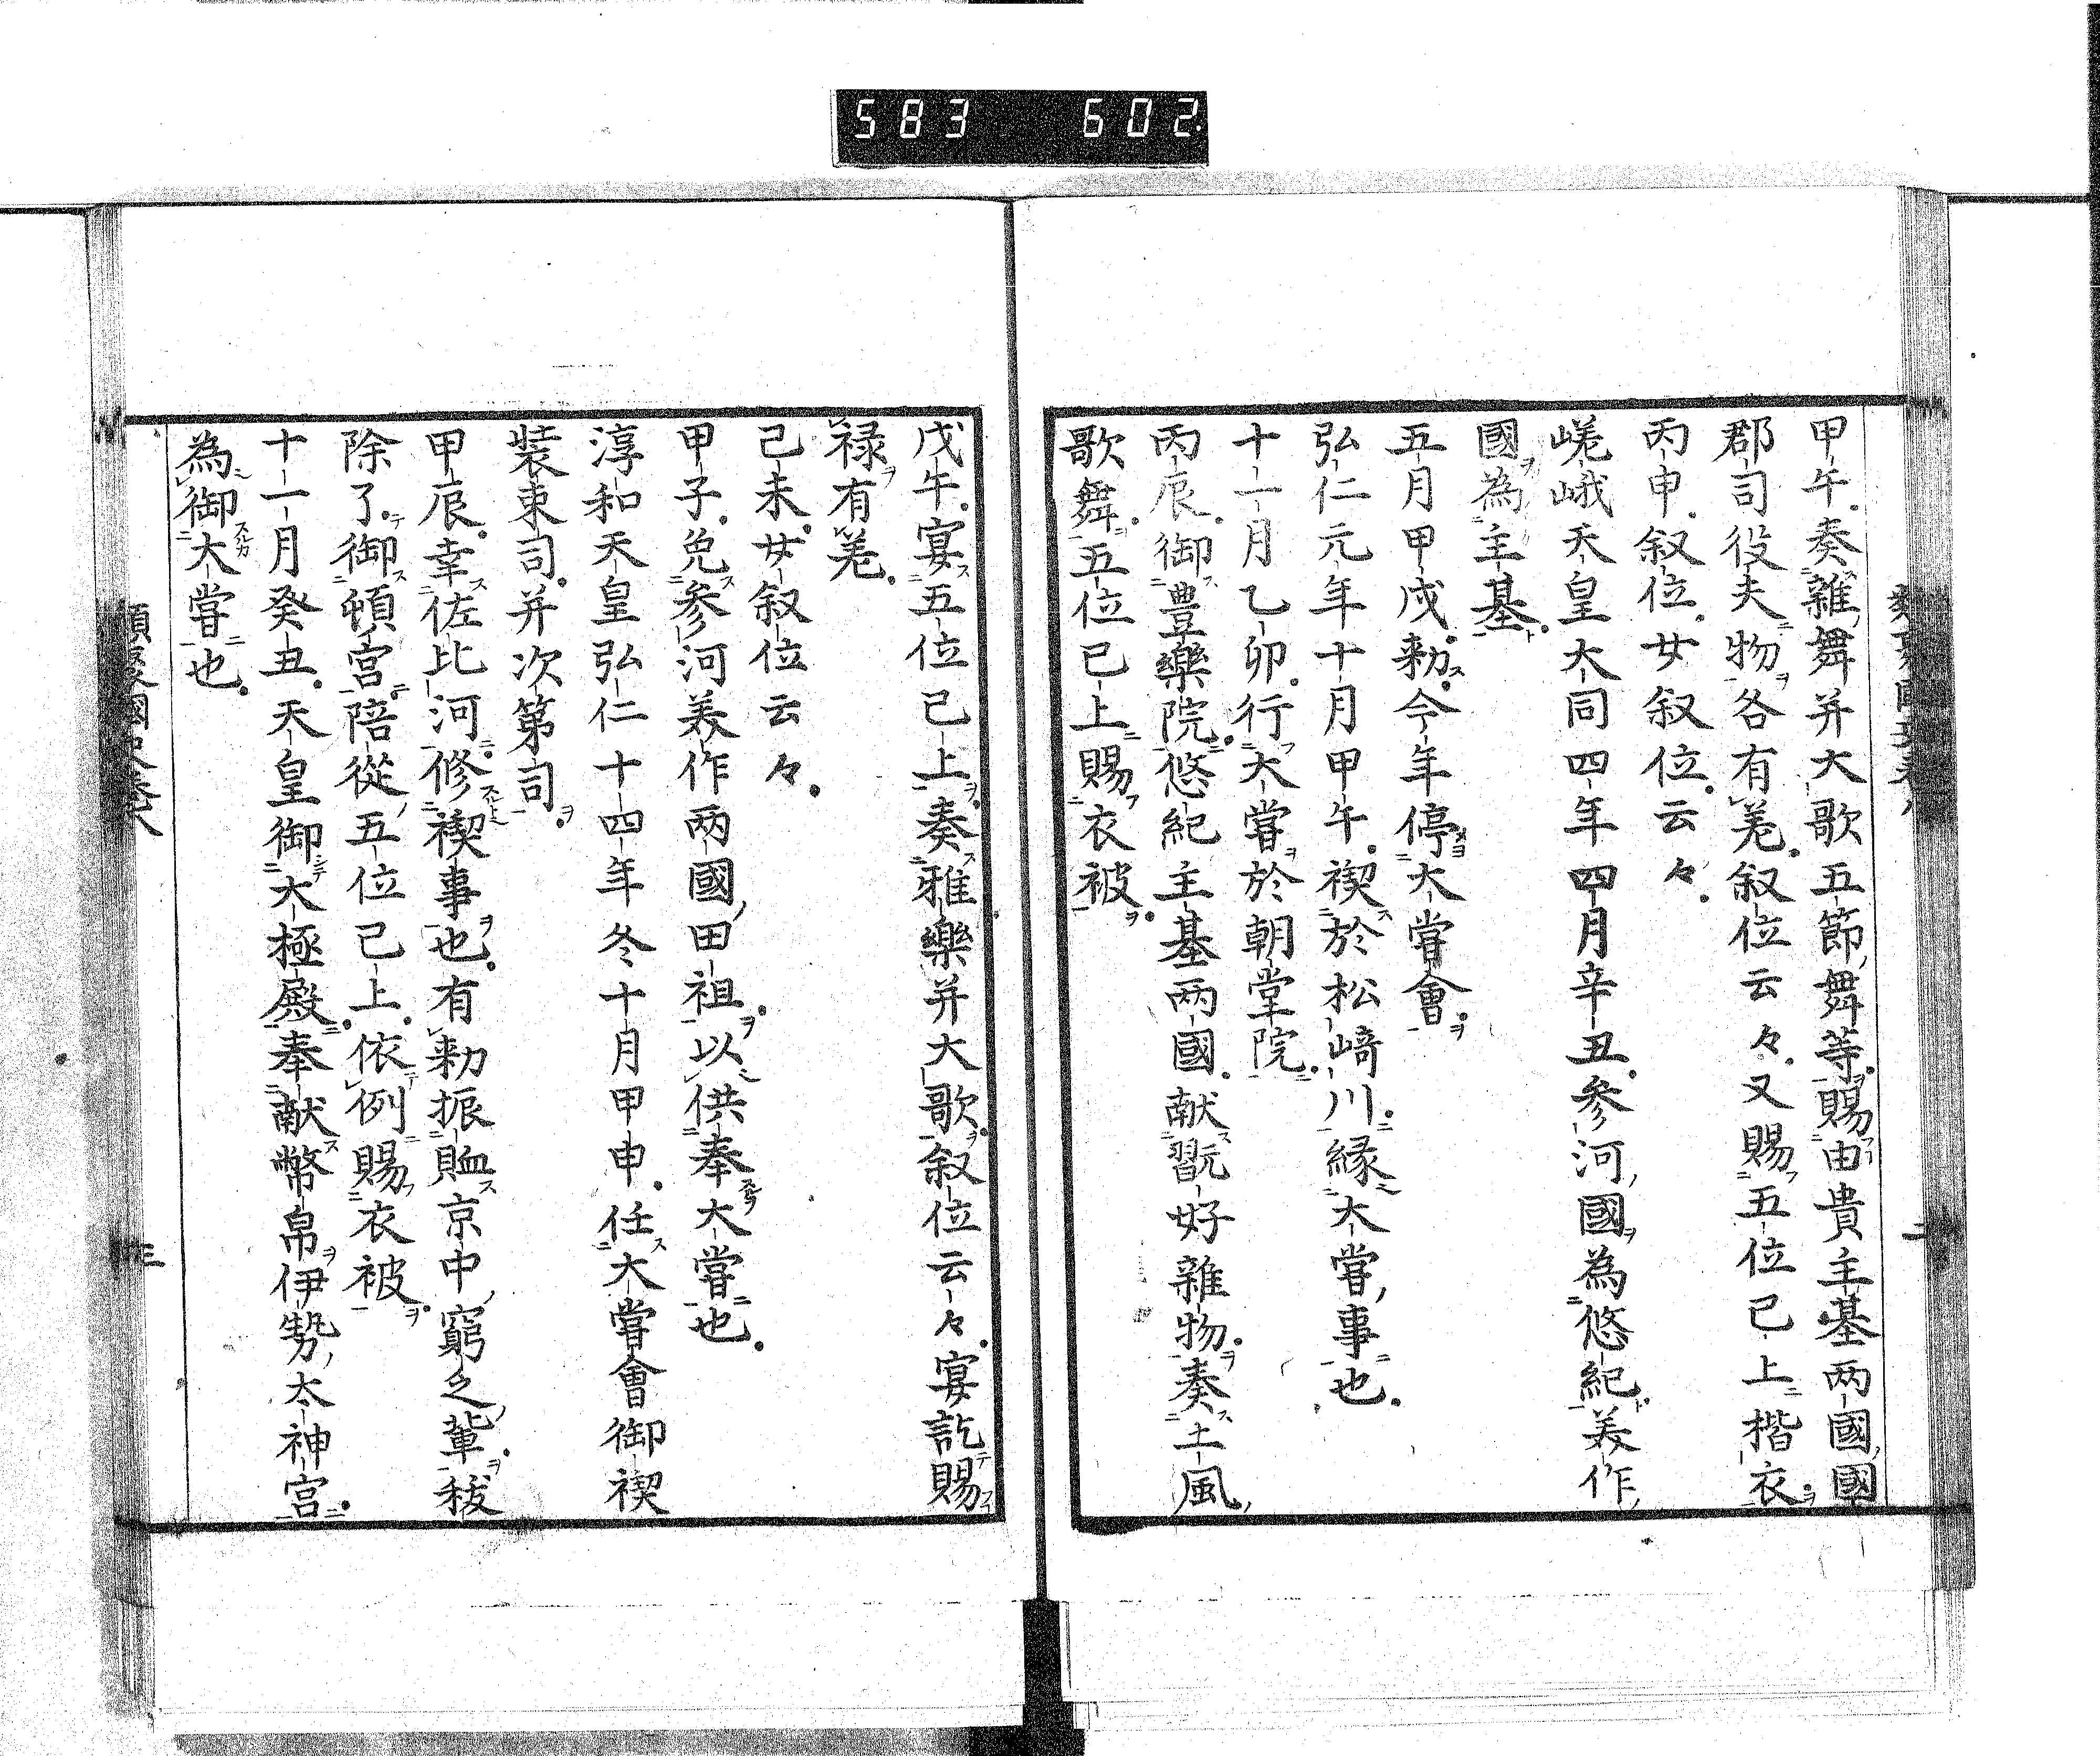 583 602
甲午奏雜舞并大歌五節舞等賜由貴主基両國國
郡司役夫物各有差叙位云々又賜五位已上揩衣
丙申叙位女叙位云々
嵯峨天皇大同四年四月辛丑參河國為悠紀美作
國為主基
五月甲戌勅今年停大嘗會
弘仁元年十月甲午禊於松﨑川緣大嘗事也
十一月乙卯行大嘗於朝堂院
丙辰御豊樂院悠紀主基両國献翫好雜物奏土風
歌舞五位已上賜衣被
戊午宴五位已上奏雅樂并大歌叙位云々宴訖賜
禄有差
己未女叙位云々
甲子免參河美作両國田祖以供奉大嘗也
淳和天皇弘仁十四年冬十月甲申任大嘗會御禊
装束司并次第司
甲辰幸佐比河修禊事也有勅振賉京中窮乏輩秡
除了御頓宮陪從五位已上依例賜衣被
十一月癸丑天皇御大極殿奉献幣帛伊勢太神宮
為御大嘗也
類聚國史卷八 三